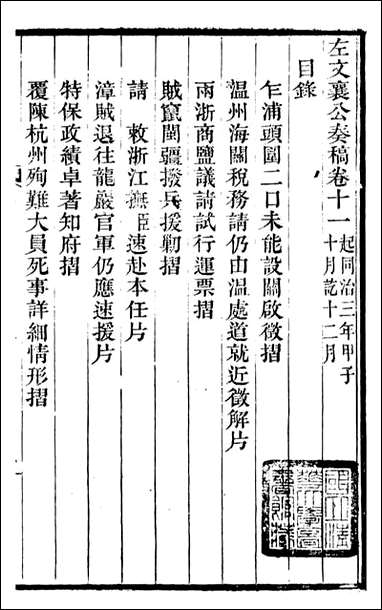 左文襄公奏稿卷十一起同治三年甲子
十月訖十二月
目錄
乍浦頭圍二口未能設關啟徵摺
温州海關稅務請仍由温處道就近徵解片
兩浙商鹽議請試行運票摺
賊竄閩疆撥兵援勦摺
請 敕浙江撫臣速赴本任片
漳賊退往龍巖官軍仍應速援片
特保政績卓著知府摺
覆陳杭州殉難大員死事詳細情形摺